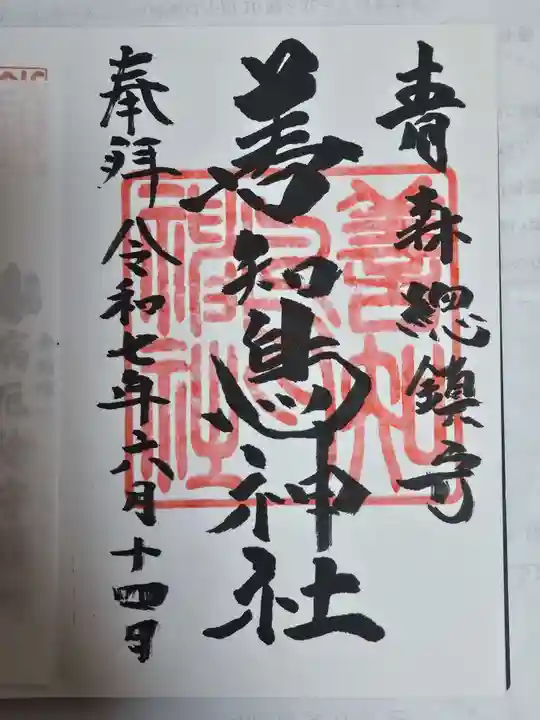 青森總鎮守
善知鳥神社
奉拜 令和七年六月十四日
善知鳥神社